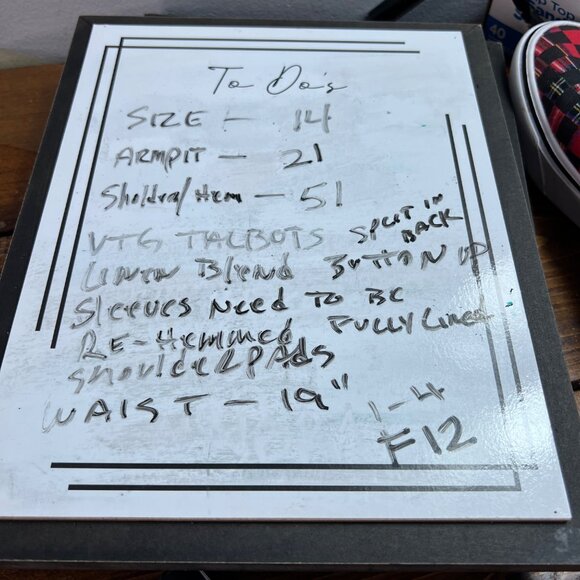 To Do's
SIZE - 14
ARMPIT - 21
Sholdra/Hem - 51
VTG TALBOTS SPLIT IN BACK
Linen Blend BUTTON UP
Sleeves Need To BE
Re-Hemmed FULLY Lined
ShoulderPADS
WAIST - 19"
1-4
F12
40